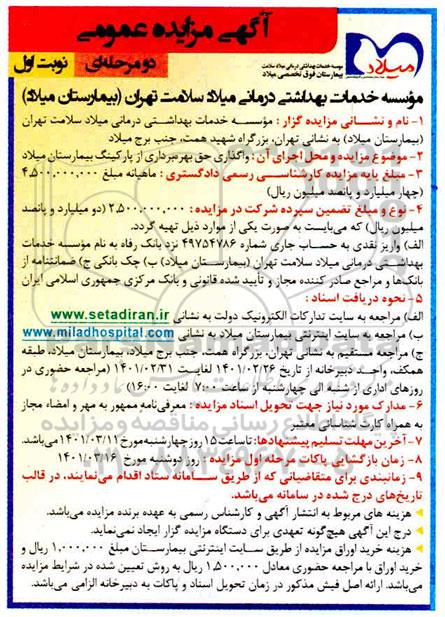 آگهی مزایده عمومی
دو مرحله‌ای نوبت اول
میلاد
موسسه خدمات بهداشتی درمانی میلاد سلامت
بیمارستان فوق تخصصی میلاد
مؤسسه خدمات بهداشتی درمانی میلاد سلامت تهران (بیمارستان میلاد)
۱- نام و نشانی مزایده گزار : مؤسسه خدمات بهداشتی درمانی میلاد سلامت تهران
(بیمارستان میلاد) به نشانی تهران، بزرگراه شهید همت، جنب برج میلاد
۲- موضوع مزایده و محل اجرای آن : واگذاری حق بهره‌برداری از پارکینگ بیمارستان میلاد
۳- مبلغ پایه مزایده کارشناسی رسمی دادگستری : ماهیانه مبلغ ۴,۵۰۰,۰۰۰,۰۰۰
(چهار میلیارد و پانصد میلیون ریال)
۴- نوع و مبلغ تضمین سپرده شرکت در مزایده : ۲,۵۰۰,۰۰۰,۰۰۰ (دو میلیارد و پانصد
میلیون ریال) که می‌بایست به صورت یکی از موارد ذیل تهیه گردد.
الف) واریز نقدی به حساب جاری شماره ۴۹۷۵۴۷۸۶ نزد بانک رفاه به نام مؤسسه خدمات
بهداشتی درمانی میلاد سلامت تهران (بیمارستان میلاد) ب) چک بانکی ج) ضمانتنامه از
بانک‌ها و مراجع صادر کننده مجاز و تأیید شده قانونی و بانک مرکزی جمهوری اسلامی ایران
۵- نحوه دریافت اسناد :
الف) مراجعه به سایت تدارکات الکترونیک دولت به نشانی www.setadiran.ir
ب) مراجعه به سایت اینترنتی بیمارستان میلاد به نشانی www.miladhospital.com
ج) مراجعه مستقیم به نشانی تهران، بزرگراه همت، جنب برج میلاد، بیمارستان میلاد، طبقه
همکف، واحد دبیرخانه از تاریخ ۱۴۰۱/۰۲/۲۶ لغایت ۱۴۰۱/۰۲/۳۱ (مراجعه حضوری در
روزهای اداری از شنبه الی چهارشنبه از ساعت ۷:۰۰ لغایت ۱۶:۰۰)
۶- مدارک مورد نیاز جهت تحویل اسناد مزایده : معرفی‌نامه ممهور به مهر و امضاء مجاز
به همراه کارت شناسائی معتبر
۷- آخرین مهلت تسلیم پیشنهادها: تا ساعت ۱۵ روز چهارشنبه مورخ ۱۴۰۱/۰۳/۱۱ می‌باشد.
۸- زمان بازگشائی پاکات مرحله اول مزایده : روز دوشنبه مورخ ۱۴۰۱/۰۳/۱۶
۹- زمانبندی برای متقاضیانی که از طریق سامانه ستاد اقدام می‌نمایند، در قالب
تاریخ‌های درج شده در سامانه می‌باشد.
هزینه های مربوط به انتشار آگهی و کارشناس رسمی به عهده برنده مزایده می‌باشد.
درج این آگهی هیچ‌گونه تعهدی برای دستگاه مزایده گزار ایجاد نمی‌نماید.
هزینه خرید اوراق مزایده از طریق سایت اینترنتی بیمارستان مبلغ ۱,۰۰۰,۰۰۰ ریال و
خرید اوراق با مراجعه حضوری معادل ۱,۵۰۰,۰۰۰ ریال به روش تعیین شده در شرایط مزایده
می‌باشد. ارائه اصل فیش مذکور در زمان تحویل اسناد و پاکات به دبیرخانه الزامی می‌باشد.